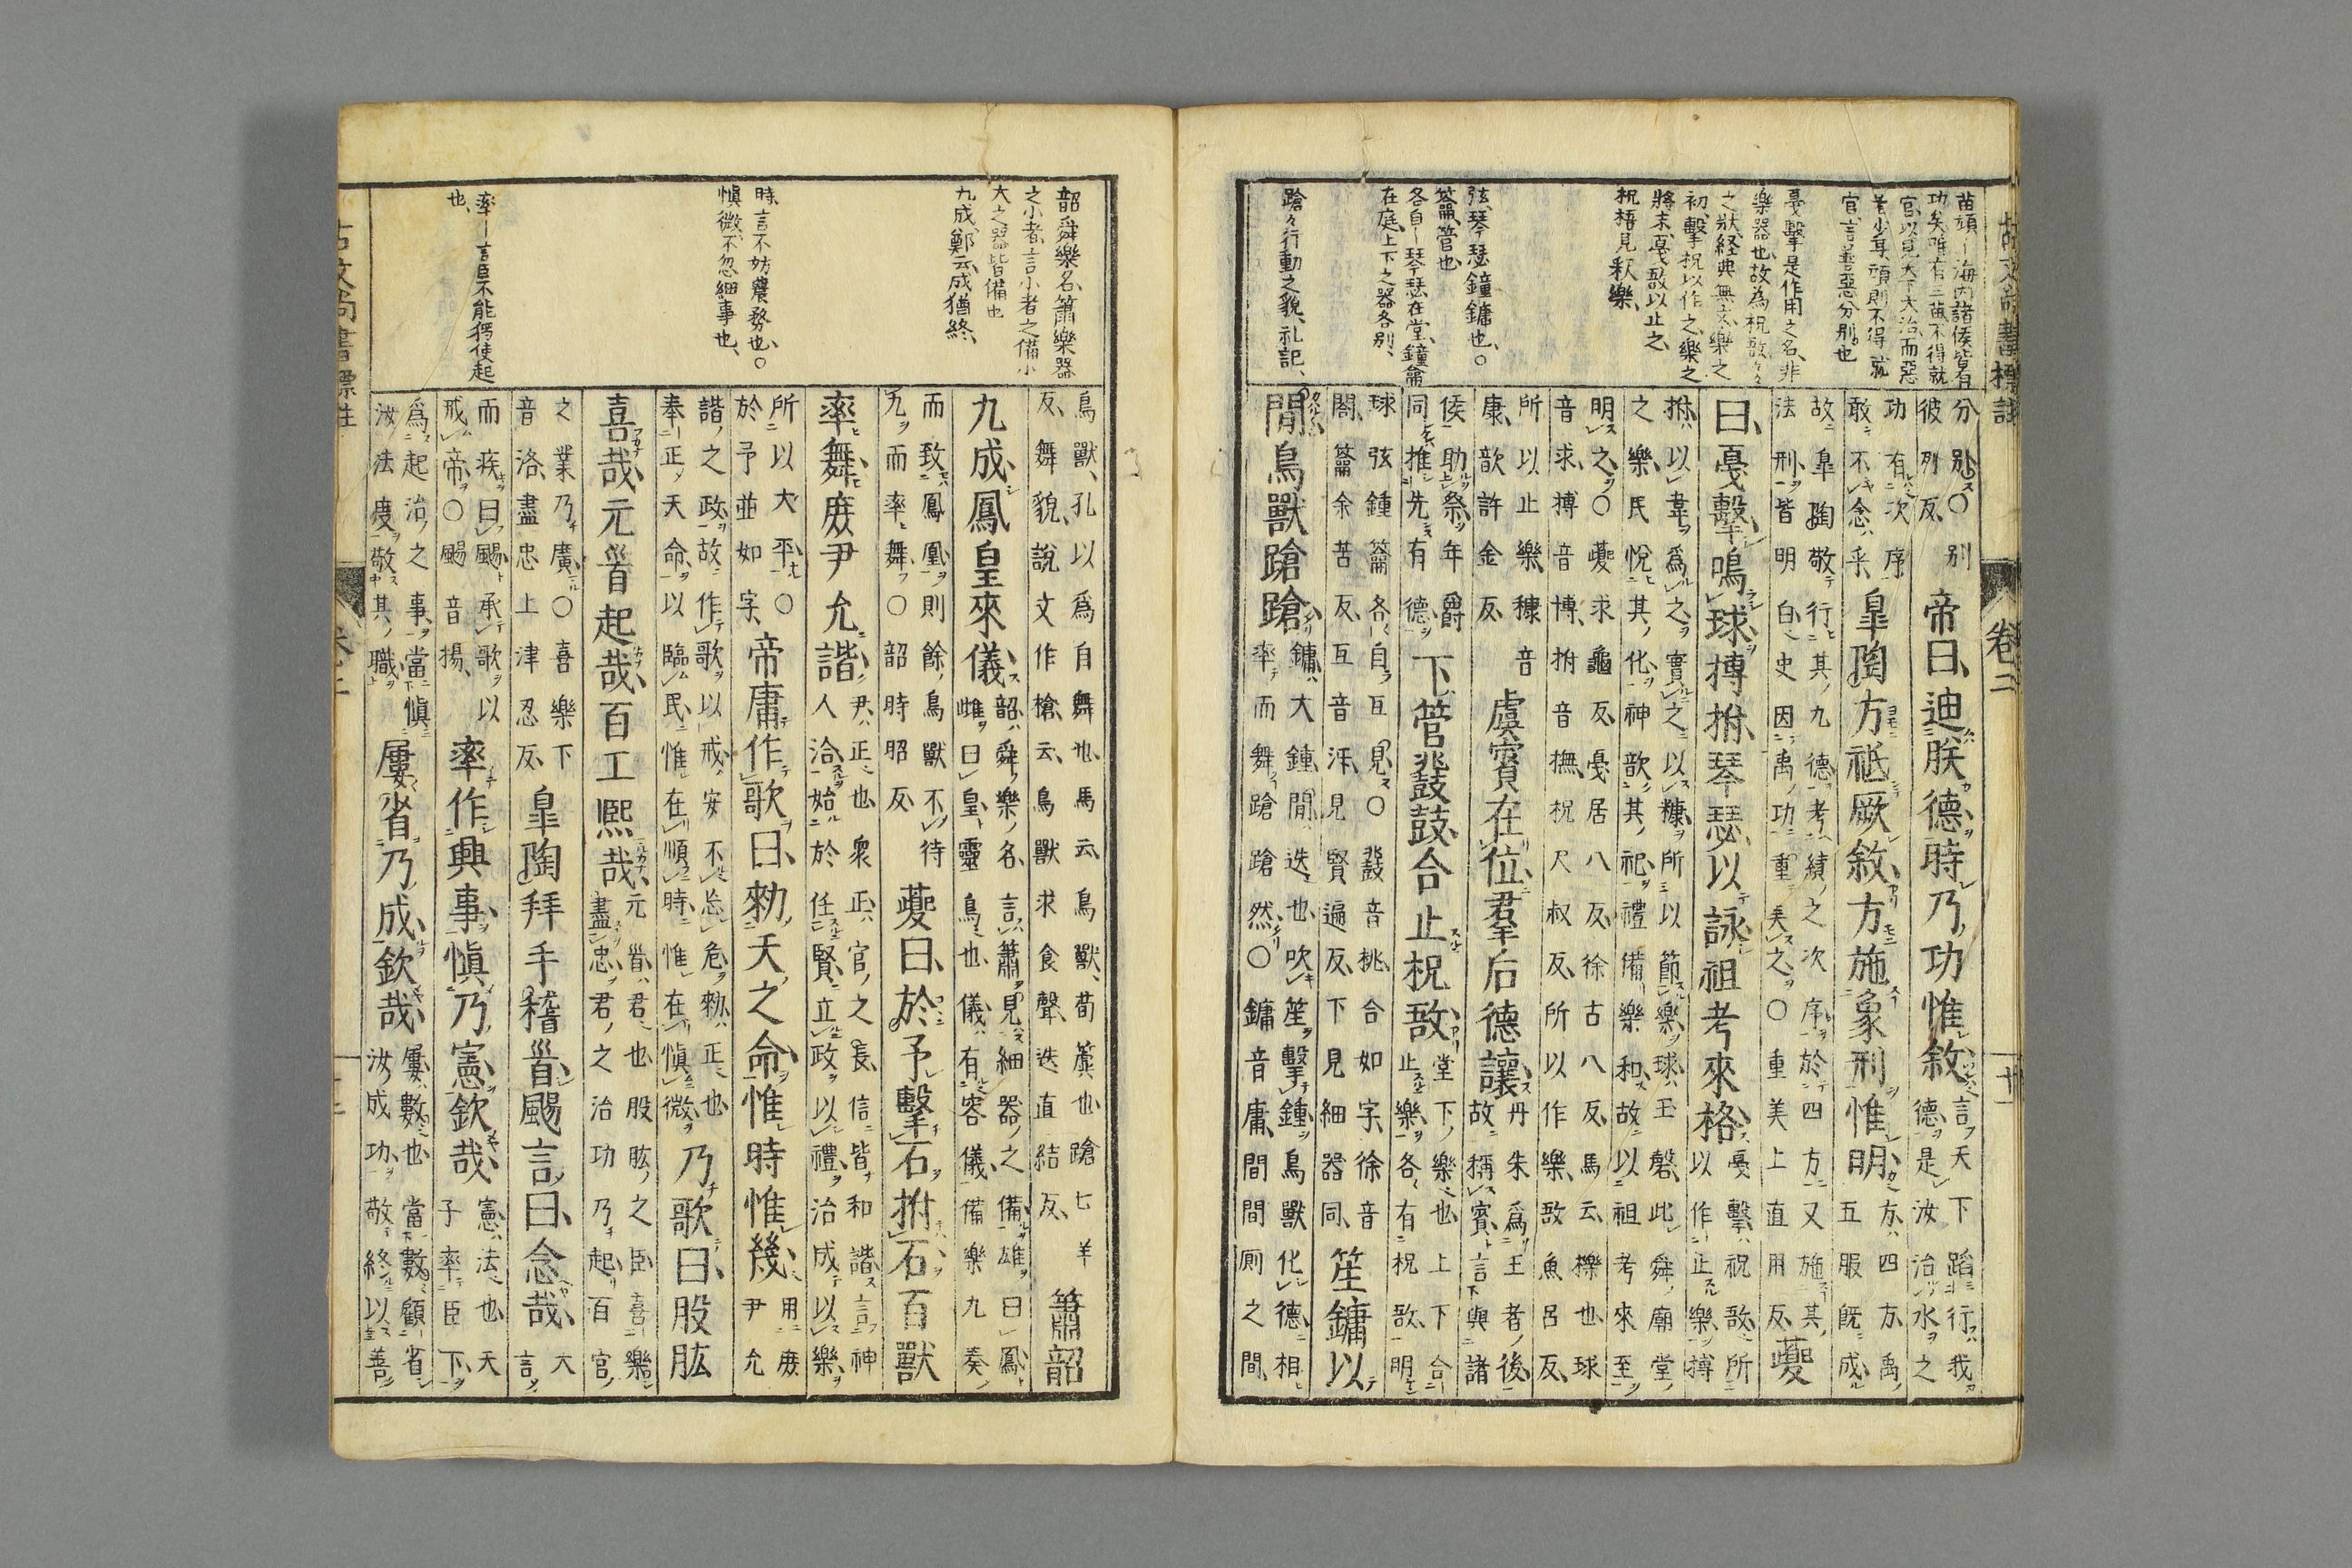 古文尚書標註
卷二
十一
苗頑ー海内諸侯皆有
功矣唯有三苗不得就
官以見天下大治而惡
者少耳頑則不得就
官言善惡分別也
戞擊是作用之名非
樂器也故為柷敔々々
之狀経典無文樂之
初擊柷以作之樂之
將末戞敔以止之
柷梧見釈樂
弦琴瑟鐘鏞也〇
籥管也
各自ー琴瑟在堂鐘籥
在庭上下之器各別
蹌々行動之貌礼記
分別〇別彼列反帝曰迪朕德時乃功惟敘言天下蹈行我德是汝治水之
功有次序敢不念乎皐陶方祗厥敘方施象刑惟明方四方禹五服既成
故皐陶敬行其九德考績之次序於四方又施其法刑皆明白史因禹功重美之〇重美上直用反夔
曰戞擊鳴球搏拊琴瑟以詠祖考來格戞擊柷敔所以作止樂搏
拊以韋爲之實之以糠所以節樂球玉磬此舜廟堂之樂民悅其化神歆其祀禮備樂和故以祖考來至
明之〇夔求龜反戞居八反徐古八反馬云櫟也球音求搏音博拊音撫柷尺叔反所以作樂敔魚呂反
所以止樂穅音康歆許金反虞賓在位羣后德讓丹朱爲王者後故稱賓言與諸
侯助祭年爵同推先有德下管鼗鼓合止柷敔堂下樂也上下合止樂各有柷敔明
球弦鍾籥各自互見〇鼗音桃合如字徐音閤籥余苦反互音沍見賢遍反下見細器同笙鏞以
間鳥獸蹌蹌鏞大鍾間迭也吹笙擊鍾鳥獸化德相率而舞蹌蹌然〇鏞音庸間間厠之間
韶舜樂名簫樂器
之小者言小者之備小
大之器皆備也
九成鄭云成猶終
時言不妨農務也〇
愼微不忽細事也
率ー言臣不能獨使起
也
鳥獸孔以爲自舞也馬云鳥獸荀簴也蹌七羊反舞貌說文作槍云鳥獸求食聲迭直結反簫韶
九成鳳皇來儀韶舜樂名言簫見細器之備雄曰鳳雌曰皇靈鳥也儀有容儀備樂九奏
而致鳳凰則餘鳥獸不待九而率舞〇韶時昭反夔曰於予擊石拊石百獸
率舞庶尹允諧尹正也衆正官之長信皆和諧言神人洽始於任賢立政以禮治成以樂
所以大平〇於予並如字帝庸作歌曰勑天之命惟時惟幾用庶尹允
諧之政故作歌以戒安不忘危勑正也奉正天命以臨民惟在順時惟在愼微乃歌曰股肱
喜哉元首起哉百工熙哉元首君也股肱之臣喜樂盡忠君之治功乃起百官
之業乃廣〇喜樂下音洛盡忠上津忍反皐陶拜手稽首颺言曰念哉大言
而疾曰颺承歌以戒帝〇颺音揚率作興事愼乃憲欽哉憲法也天子率臣下
爲起治之事當愼汝法度敬其職屢省乃成欽哉屢數也當數顧省汝成功敬終以善